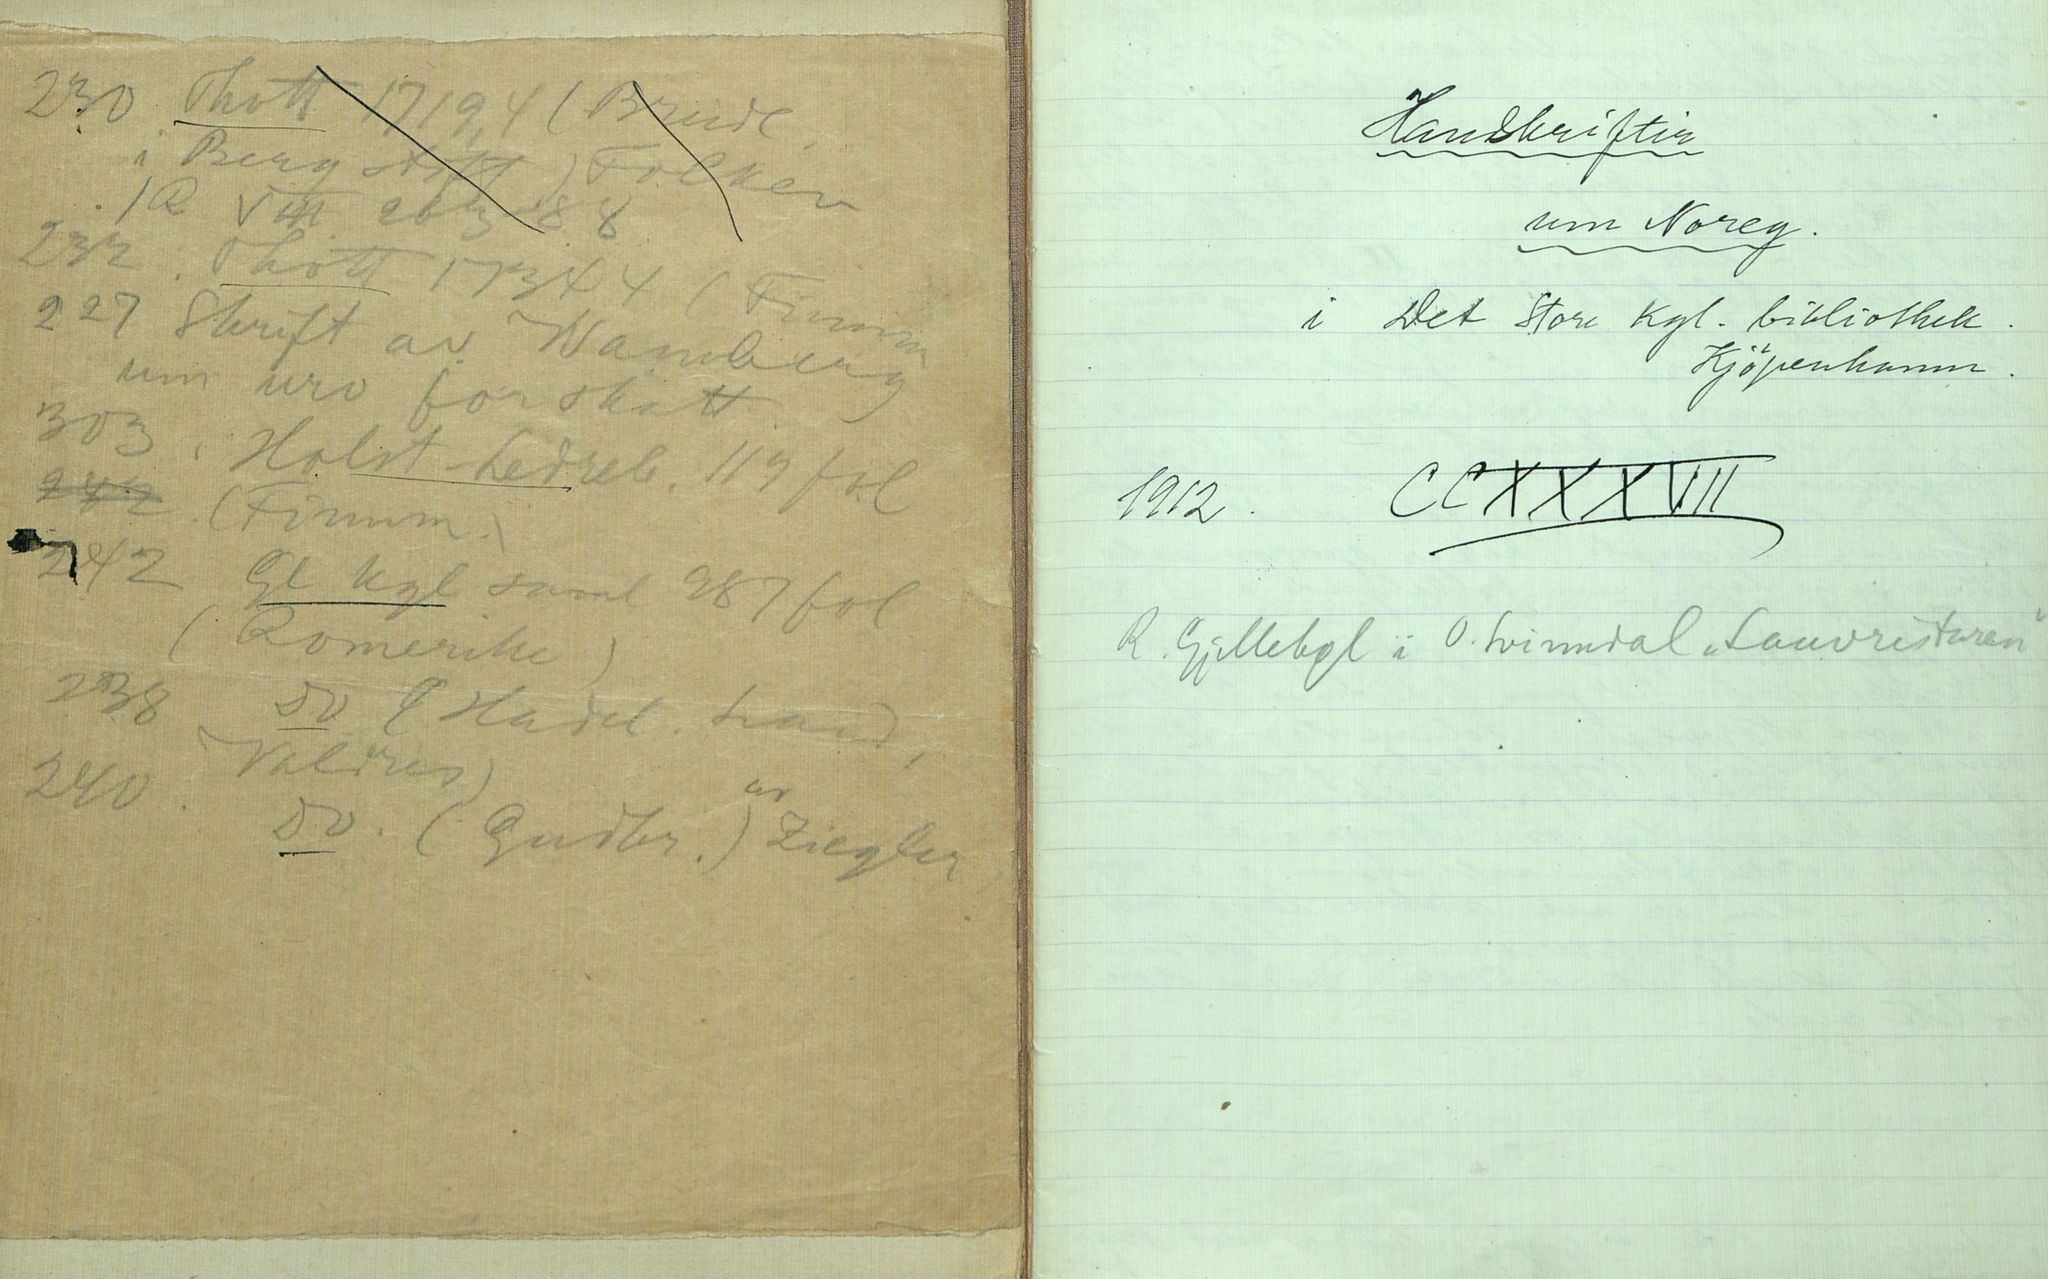 230. Thott 1719,4 (Brudl.
i Berg stift) Folken
/R VIII 2b 3 88
232. Thott 1734 4 (Finnm
227 Skrift av Wamberg
um uro for skatt
303. Holst-Ledreb. 119 fol
242 (Finnm.)
242 Gl kgl saml 987 fol
(Romerike)
238 Do (Hadel. Land,
Valdres)
240. Do. (Gudbr.) av Ziegler
Handskriftir
um Noreg.
i Det Store Kgl. bibliothek.
Kjöpenhamn.
1912. CCXXXVIII
R. Gjellebøl i O. Svinndal „Lauvristaren"